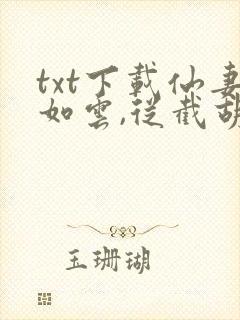 txt下載仙妻
如雲,從截胡
玉珊瑚